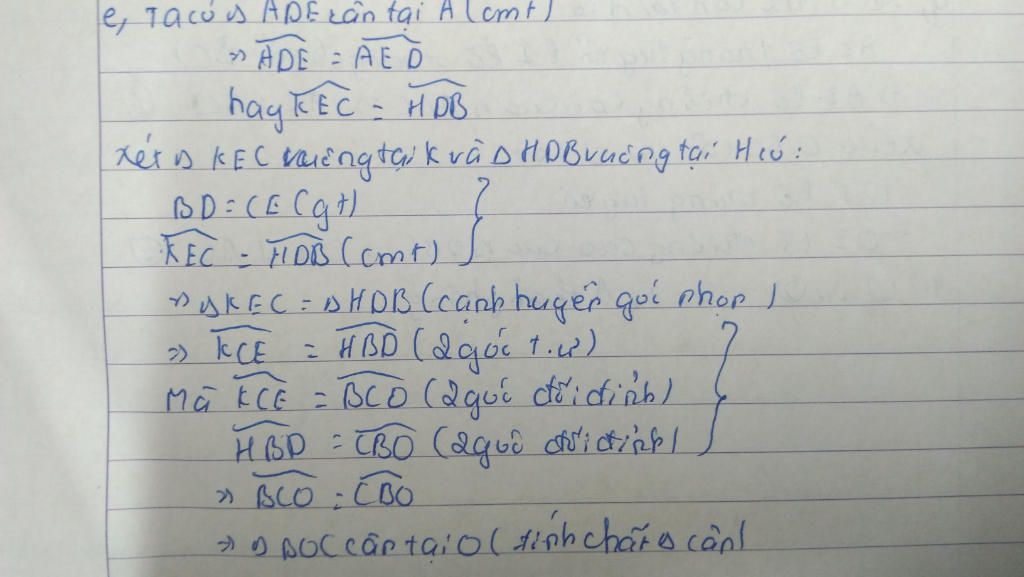 e, Ta có Δ ADE cân tại A (cmt)
=> ADE = AED
hay KEC = HDB
Xét Δ KEC vuông tại K và Δ HDB vuông tại H có:
BD = CE (gt)
KEC = HDB (cmt)
=> Δ KEC = Δ HDB (cạnh huyền góc nhọn)
=> KCE = HBD (2 góc t.ư)
Mà KCE = BCO (2 góc đối đỉnh)
HBD = CBO (2 góc đối đỉnh)
=> BCO = CBO
=> Δ BOC cân tại O (tính chất Δ cân)